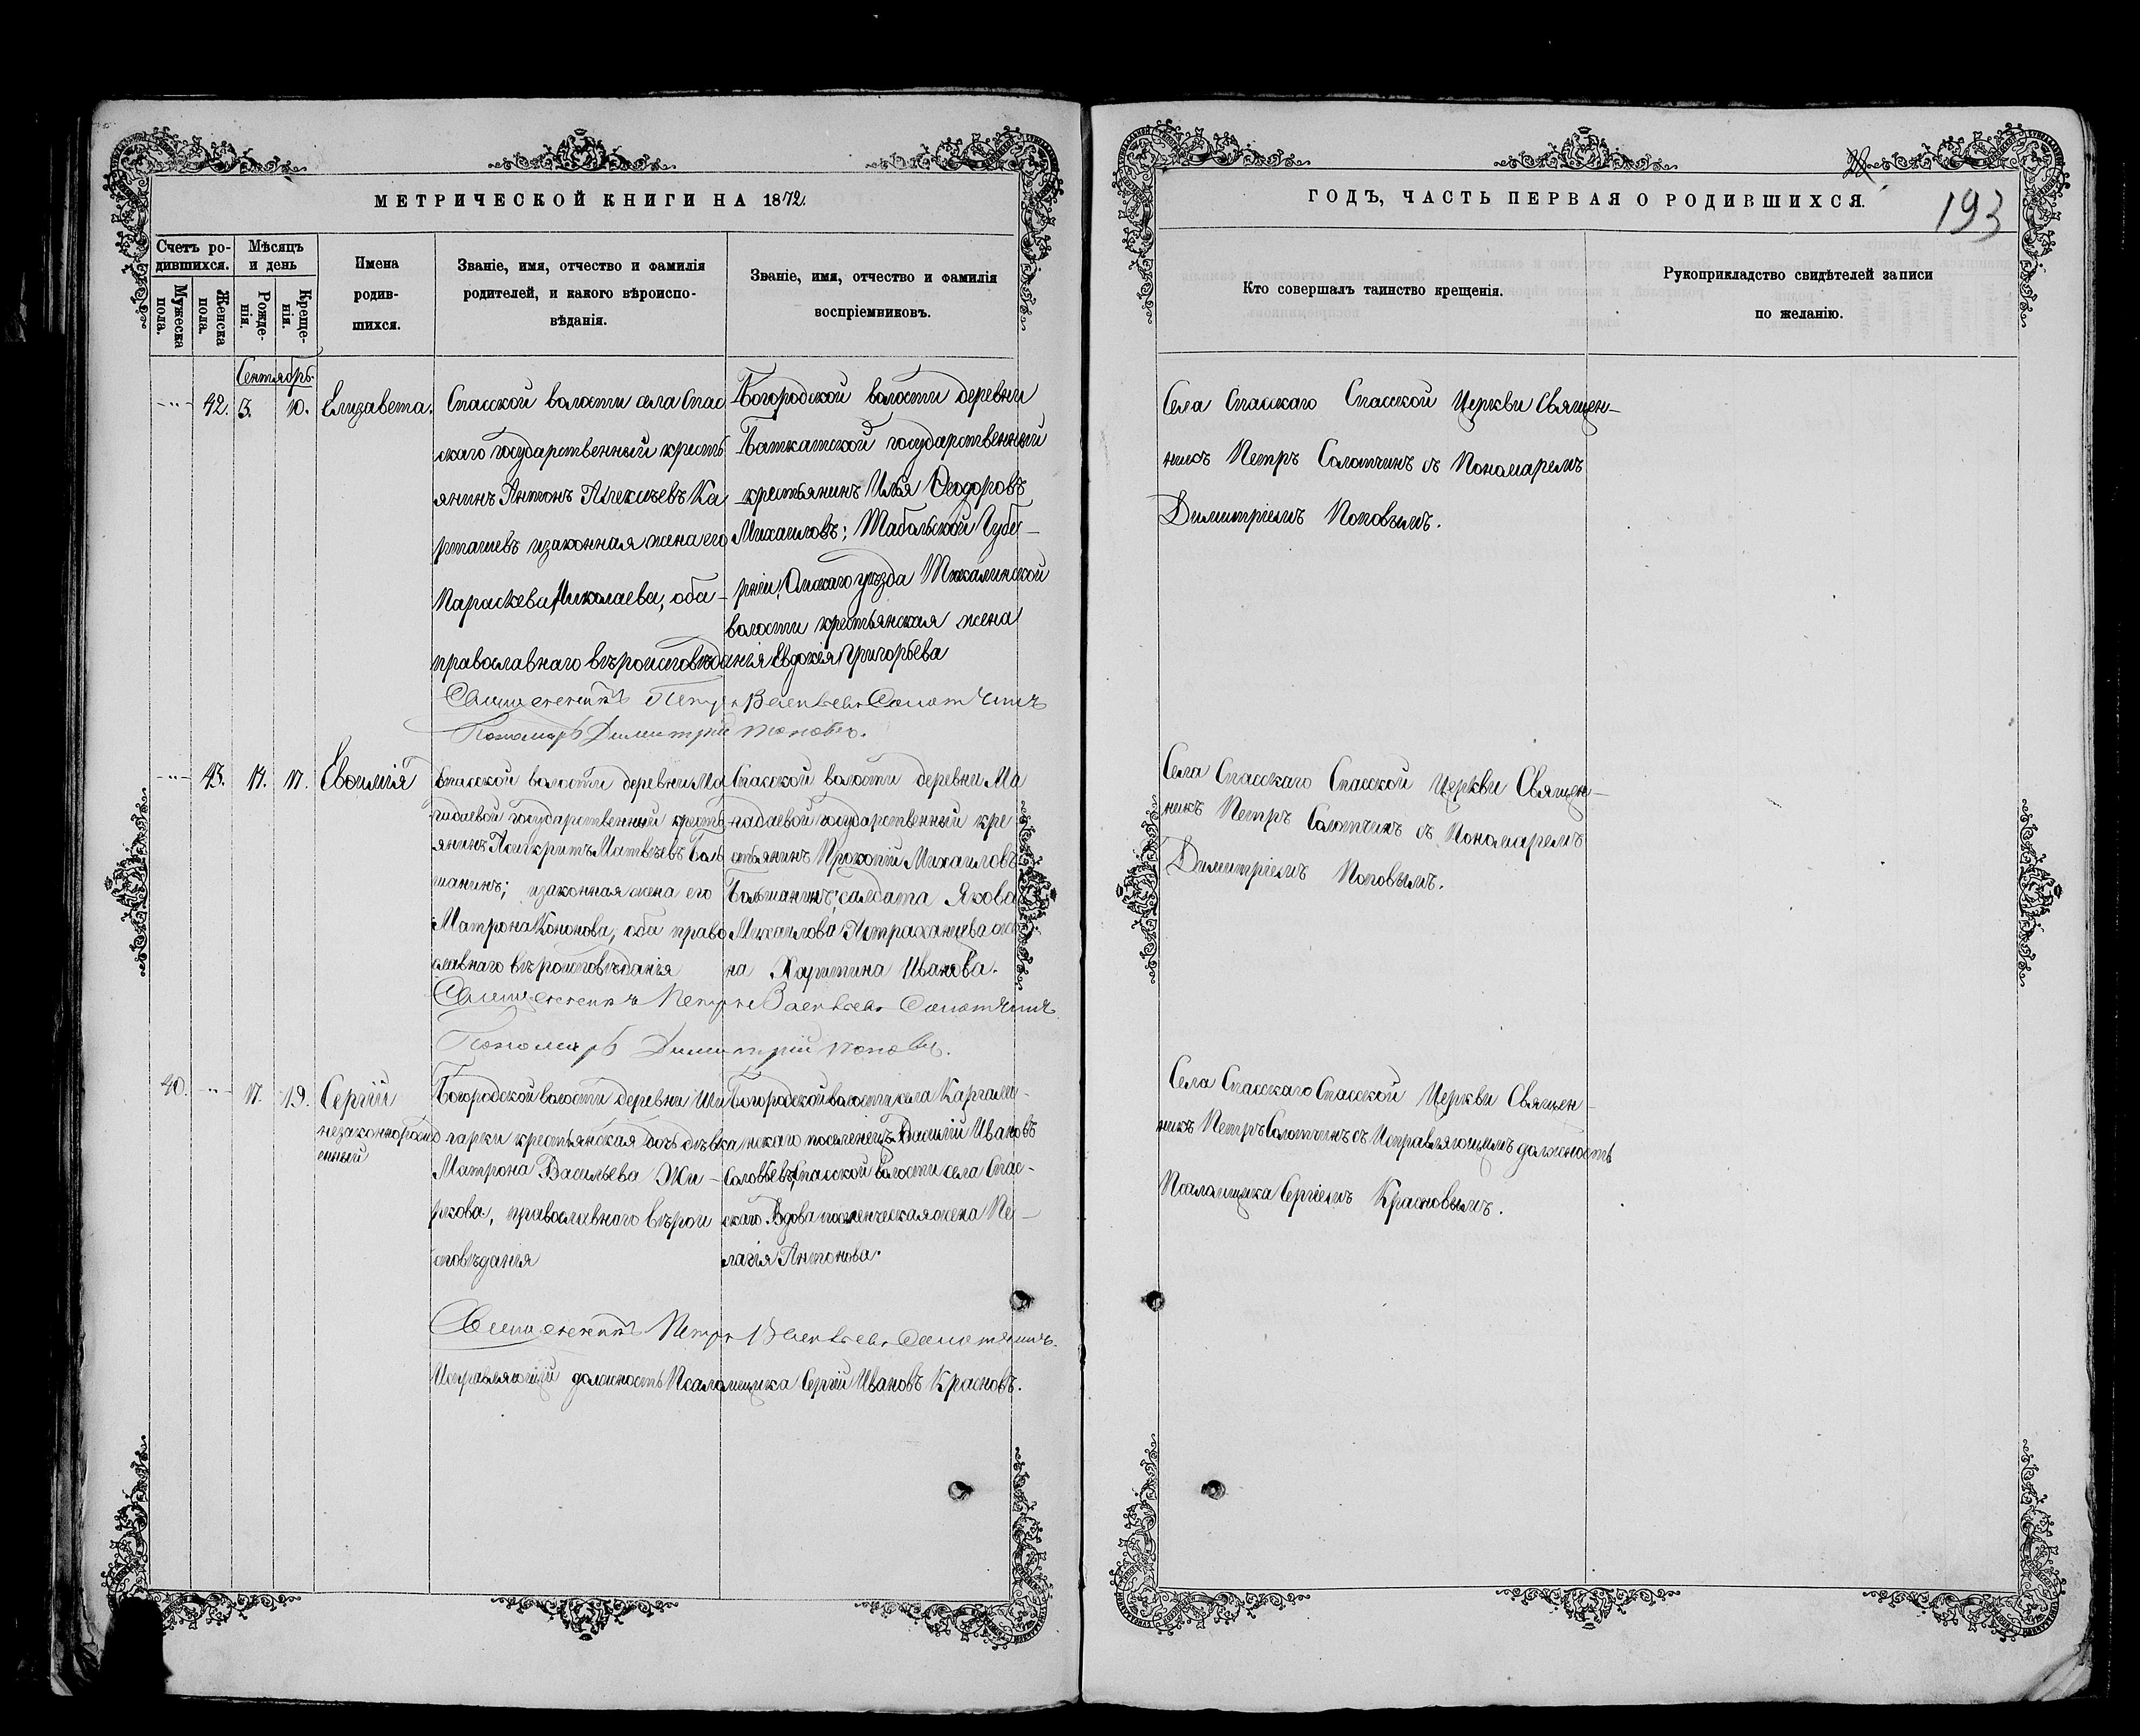 МЕТРИЧЕСКОЙ КНИГИ НА 1872.
Счетъ ро-
дившихся.
Мужеска
пола.
Женска
пола.
Мѣсяцъ
и день
Рожде-
нія.
Креще-
нія.
Имена
родив-
шихся.
Званіе, имя, отчество и фамилія
родителей, и какого вѣроиспо-
вѣданія.
Званіе, имя, отчество и фамилія
воспріемниковъ.
Сентябрь.
42. 3. 10. Елизавета.
Спасской волости села Спас
скаго государственный кресть
янинъ Антонъ Алексѣевъ Ка
рташевъ изаконная жена его
Параскева Николаева, оба
православнаго вѣроисповѣданія
Богородской волости деревни
Баткатской государственный
крестьянинъ Илья Ѳеодоровъ
Михаиловъ; Табольской Губе
рніи, Омскаго уѣзда Тюкалинской
волости крестьянская жена
Евдокія Григорьева
Священникъ Петръ Васильевъ Солотчинъ
Пономарь Димитрій Поповъ.
43. 14. 17. Евѳимія
Спасской волости деревни Ма
гадаевой государственный кресть
янинъ Панкритъ Матвѣевъ Боль
шанинъ; изаконная жена его
Матрона Кононова, оба право
славнаго вѣроисповѣданія
Спасской волости деревни Ма
гадаевой государственный кре
стьянинъ Прокопій Михаиловъ
Большанинъ; салдата Якова
Михаилова Астраханцева же
на Харитина Иванова.
Священникъ Петръ Васильевъ Солотчинъ
Пономарь Димитрій Поповъ.
40. 17. 19. Сергій
незаконнорожд
енный
Богородской волости деревни Ши
гарки крестьянская дочь дѣвка
Матрона Васильева Жи-
ркова, православнаго вѣрои
сповѣданія
Богородской волости села Каргали-
нскаго поселенецъ Василій Ивановъ
Соловьевъ, Спасской волости села Спас-
скаго Вдова поселенческая жена Пе-
лагія Антонова.
Священникъ Петръ Васильевъ Солотчинъ.
Исправляющій должность Псаломщика Сергій Ивановъ Красновъ.
ГОДЪ, ЧАСТЬ ПЕРВАЯ О РОДИВШИХСЯ.
193
Кто совершалъ таинство крещенія.
Рукоприкладство свидѣтелей записи
по желанію.
Села Спасскаго Спасской Церкви Священ-
никъ Петръ Солотчинъ съ Пономаремъ
Димитріемъ Поповымъ.
Села Спасскаго Спасской Церкви Священ-
никъ Петръ Солотчинъ съ Пономаремъ
Димитріемъ Поповымъ.
Села Спасскаго Спасской Церкви Священ-
никъ Петръ Солотчинъ съ Исправляющимъ должность
Псаломщика Сергіемъ Красновымъ.